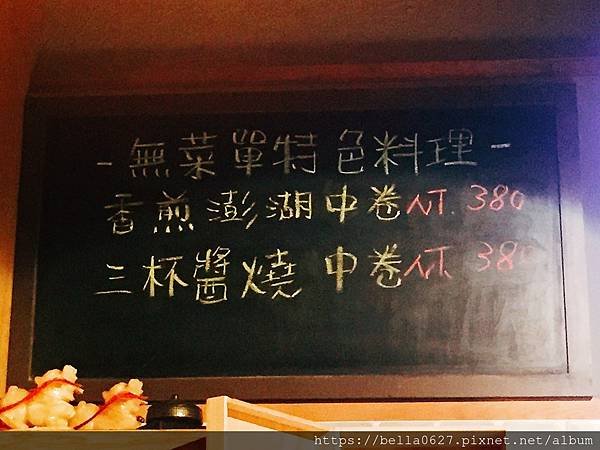 -無菜單特色料理-
香煎澎湖中卷NT.380
三杯醬燒中卷NT.380
https://bella0627.pixnet.net/album